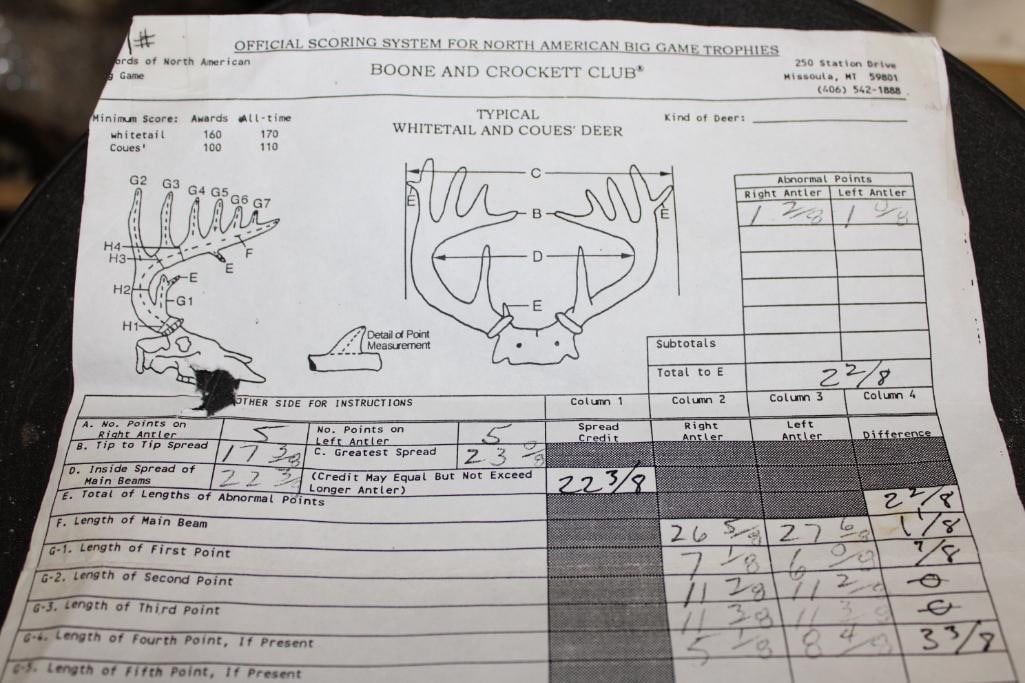 1#
OFFICIAL SCORING SYSTEM FOR NORTH AMERICAN BIG GAME TROPHIES
ords of North American
g Game
BOONE AND CROCKETT CLUB®
250 Station Drive
Missoula, MT 59801
(406) 542-1888
Minimum Score: Awards All-time
whitetail 160 170
Coues' 100 110
TYPICAL
WHITETAIL AND COUES' DEER
Kind of Deer:
G2 G3 G4 G5 G6 G7
H4
H3
H2
H1
E
G1
E
F
Detail of Point
Measurement
C
E
B
E
D
E
Abnormal Points
Right Antler Left Antler
1 2/8 1 0/8
Subtotals
Total to E 2 2/8
OTHER SIDE FOR INSTRUCTIONS Column 1 Column 2 Column 3 Column 4
A. No. Points on Right Antler 5 No. Points on Left Antler 5 Spread Credit Right Antler Left Antler Difference
B. Tip to Tip Spread 17 3/8 C. Greatest Spread 23 /8
D. Inside Spread of Main Beams 22 3/8 (Credit May Equal But Not Exceed Longer Antler) 22 3/8
E. Total of Lengths of Abnormal Points 2 2/8
F. Length of Main Beam 26 5/8 27 6/8 1 1/8
G-1. Length of First Point 7 1/8 6 0/8 /8
G-2. Length of Second Point 11 2/8 11 2/8 0
G-3. Length of Third Point 11 3/8 11 3/8 0
G-4. Length of Fourth Point, If Present 5 1/8 8 4/8 3 3/8
G-5. Length of Fifth Point, If Present